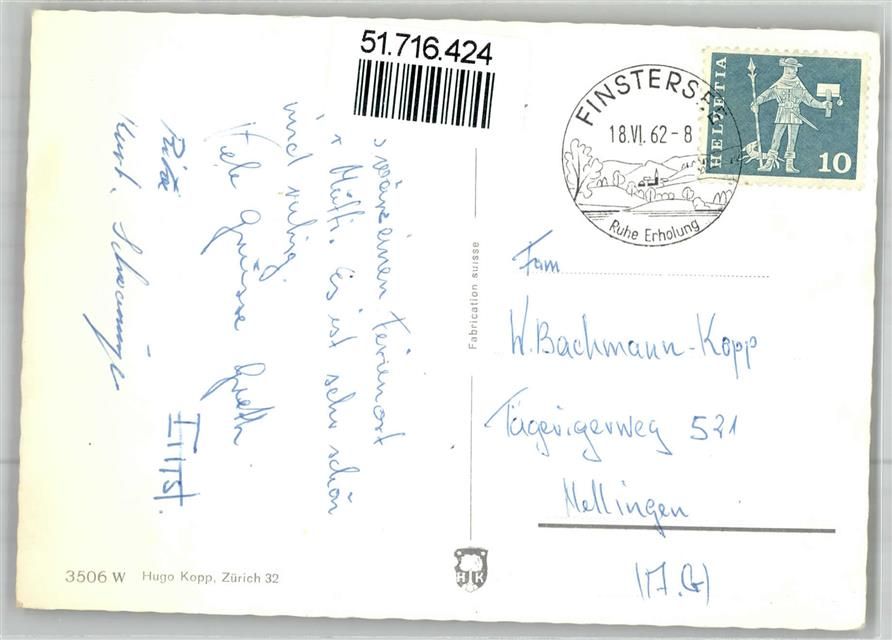 51.716.424
s wäre einen Ferienort
r Mutti. Es ist sehr schön
und ruhig.
Viele Grüsse Greth
Rita
Ernst.
Kurt.
Fabrication suisse
FINSTERSEE
18.VI.62-8
Ruhe Erholung
HELVETIA
10
Fam.
W. Bachmann-Kopp
Tägerigerweg 521
Mellingen
(A.G)
3506 W Hugo Kopp, Zürich 32
H K